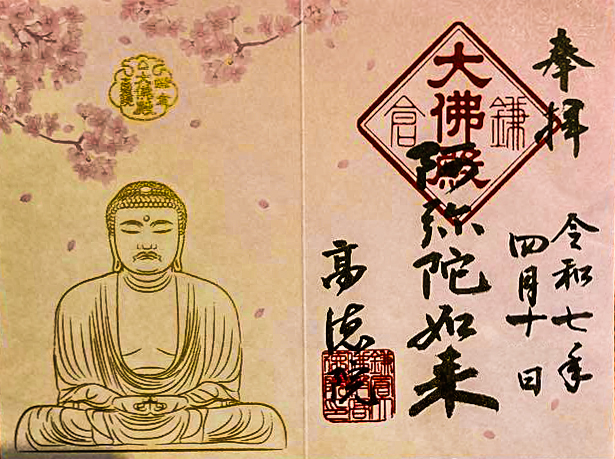 奉拝
令和七年
四月十日
大佛殿
鎌倉
阿弥陀如来
高徳院
大佛殿